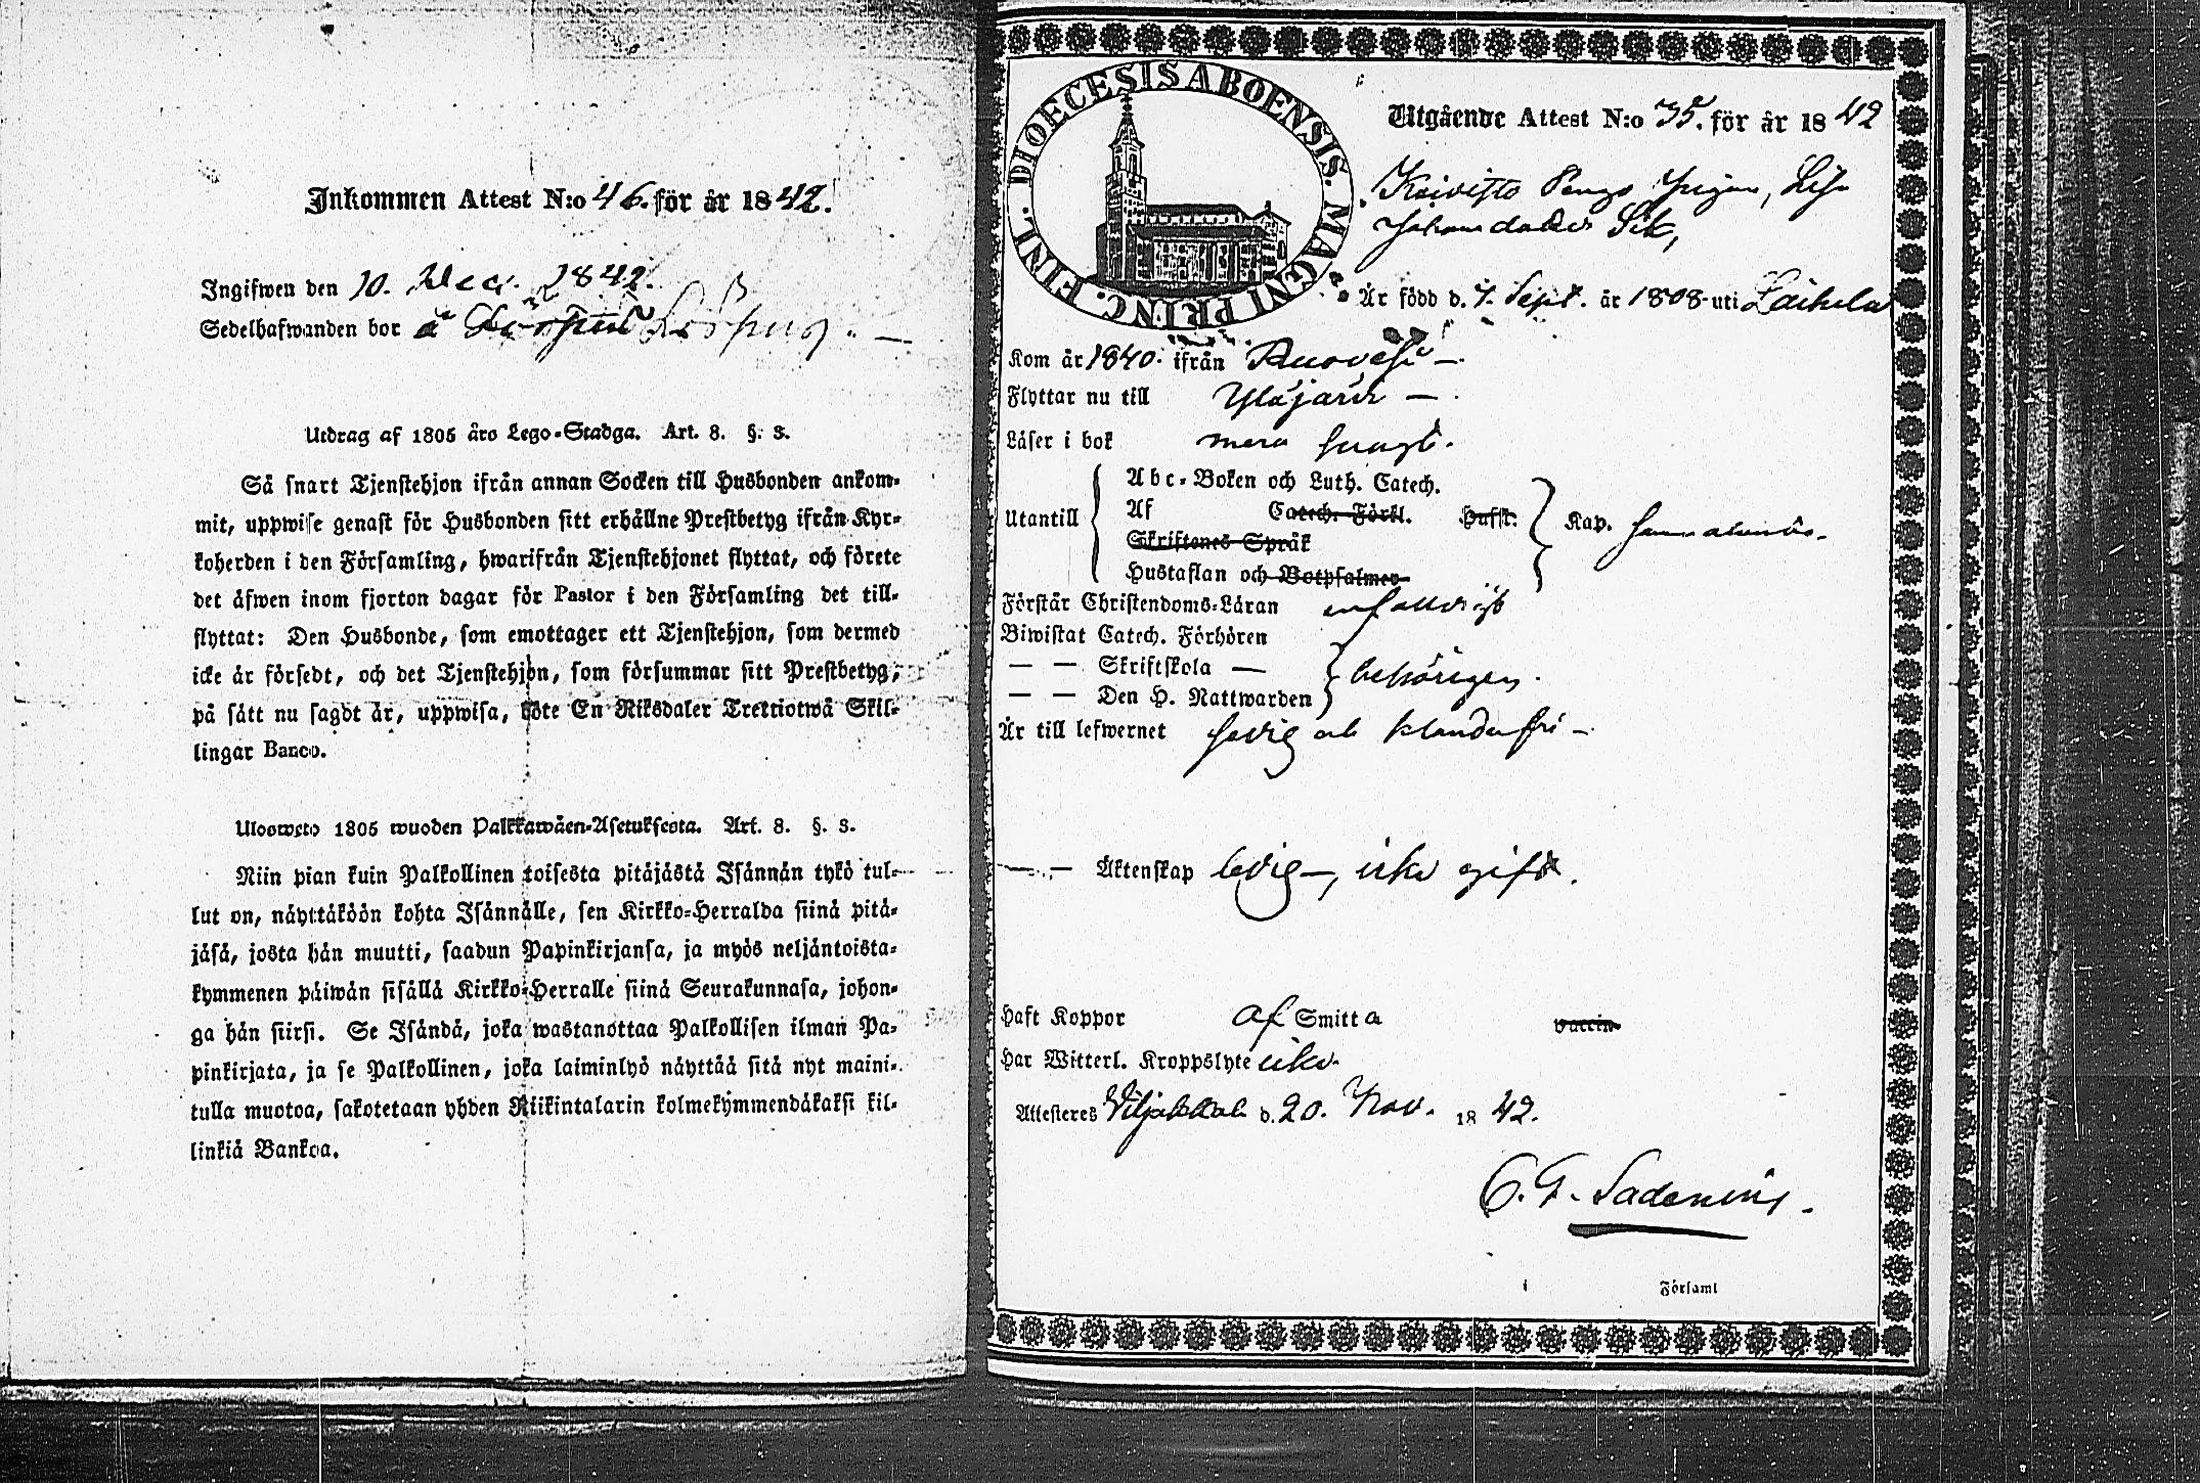 Inkommen Attest N:o 46. för år 1842.
Ingifwen den 10. Dec. 1842.
Sedelhafwanden bor å
Utdrag af 1805 års Lego-Stadga. Art. 8. §. 3.
Så snart Tjenstehjon ifrån annan Socken till Husbonden ankom-
mit, uppwise genast för Husbonden sitt erhållne Prestbetyg ifrån Kyr-
koherden i den Församling, hwarifrån Tjenstehjonet flyttat, och förete
det äfwen inom fjorton dagar för Pastor i den Församling det till-
flyttat: Den Husbonde, som emottager ett Tjenstehjon, som dermed
icke är försedt, och det Tjenstehjon, som försummar sitt Prestbetyg,
på sätt nu sagdt är, uppwisa, böte En Riksdaler Trettiotwå Skil-
lingar Banco.
Ulosweto 1805 wuoden Palkkawäen-Asetuksesta. Art. 8. §. 3.
Niin pian kuin Palkollinen toisesta pitäjästä Isännän tykö tul-
lut on, näyttäköön kohta Isännälle, sen Kirkko-Herralda siinä pitä-
jäsä, josta hän muutti, saadun Papinkirjansa, ja myös neljäntoista-
kymmenen päiwän sisällä Kirkko-Herralle siinä Seurakunnasa, johon-
ga hän siirsi. Se Isändä, joka wastanottaa Palkollisen ilman Pa-
pinkirjata, ja se Palkollinen, joka laiminlyö näyttää sitä nyt maini-
tulla muotoa, sakotetaan yhden Riikintalarin kolmekymmendäkaksi kil-
linkiä Bankoa.
DIOECESIS ABOENSIS. MAGNI PRINC. FINL.
Utgående Attest N:o 35. för år 1842
Koivisto Pigan, Lisa
Johansdotter
Är född d. 7. Sept. år 1808 uti Laihela
Kom år 1840. ifrån Ruovesi
Flyttar nu till Ylöjärvi
Läser i bok
Utantill
Abc-Boken och Luth. Catech.
Af Catech. Förkl. Hufst. Kap.
Skriftenes Språk
Hustaflan och Botpsalmer
Förstår Christendoms-Läran enfaldigt
Biwistat Catech. Förhören
— — Skriftskola — behörigen.
— — Den H. Nattwarden
Är till lefwernet och klanderfri
— — Äktenskap ledig, icke gift.
Haft Koppor af Smitta vaccin.
Har Witterl. Kroppslyte icke.
Attesteres Viljakkala d. 20. Nov. 1842.
C. G. Sadenius.
Församl